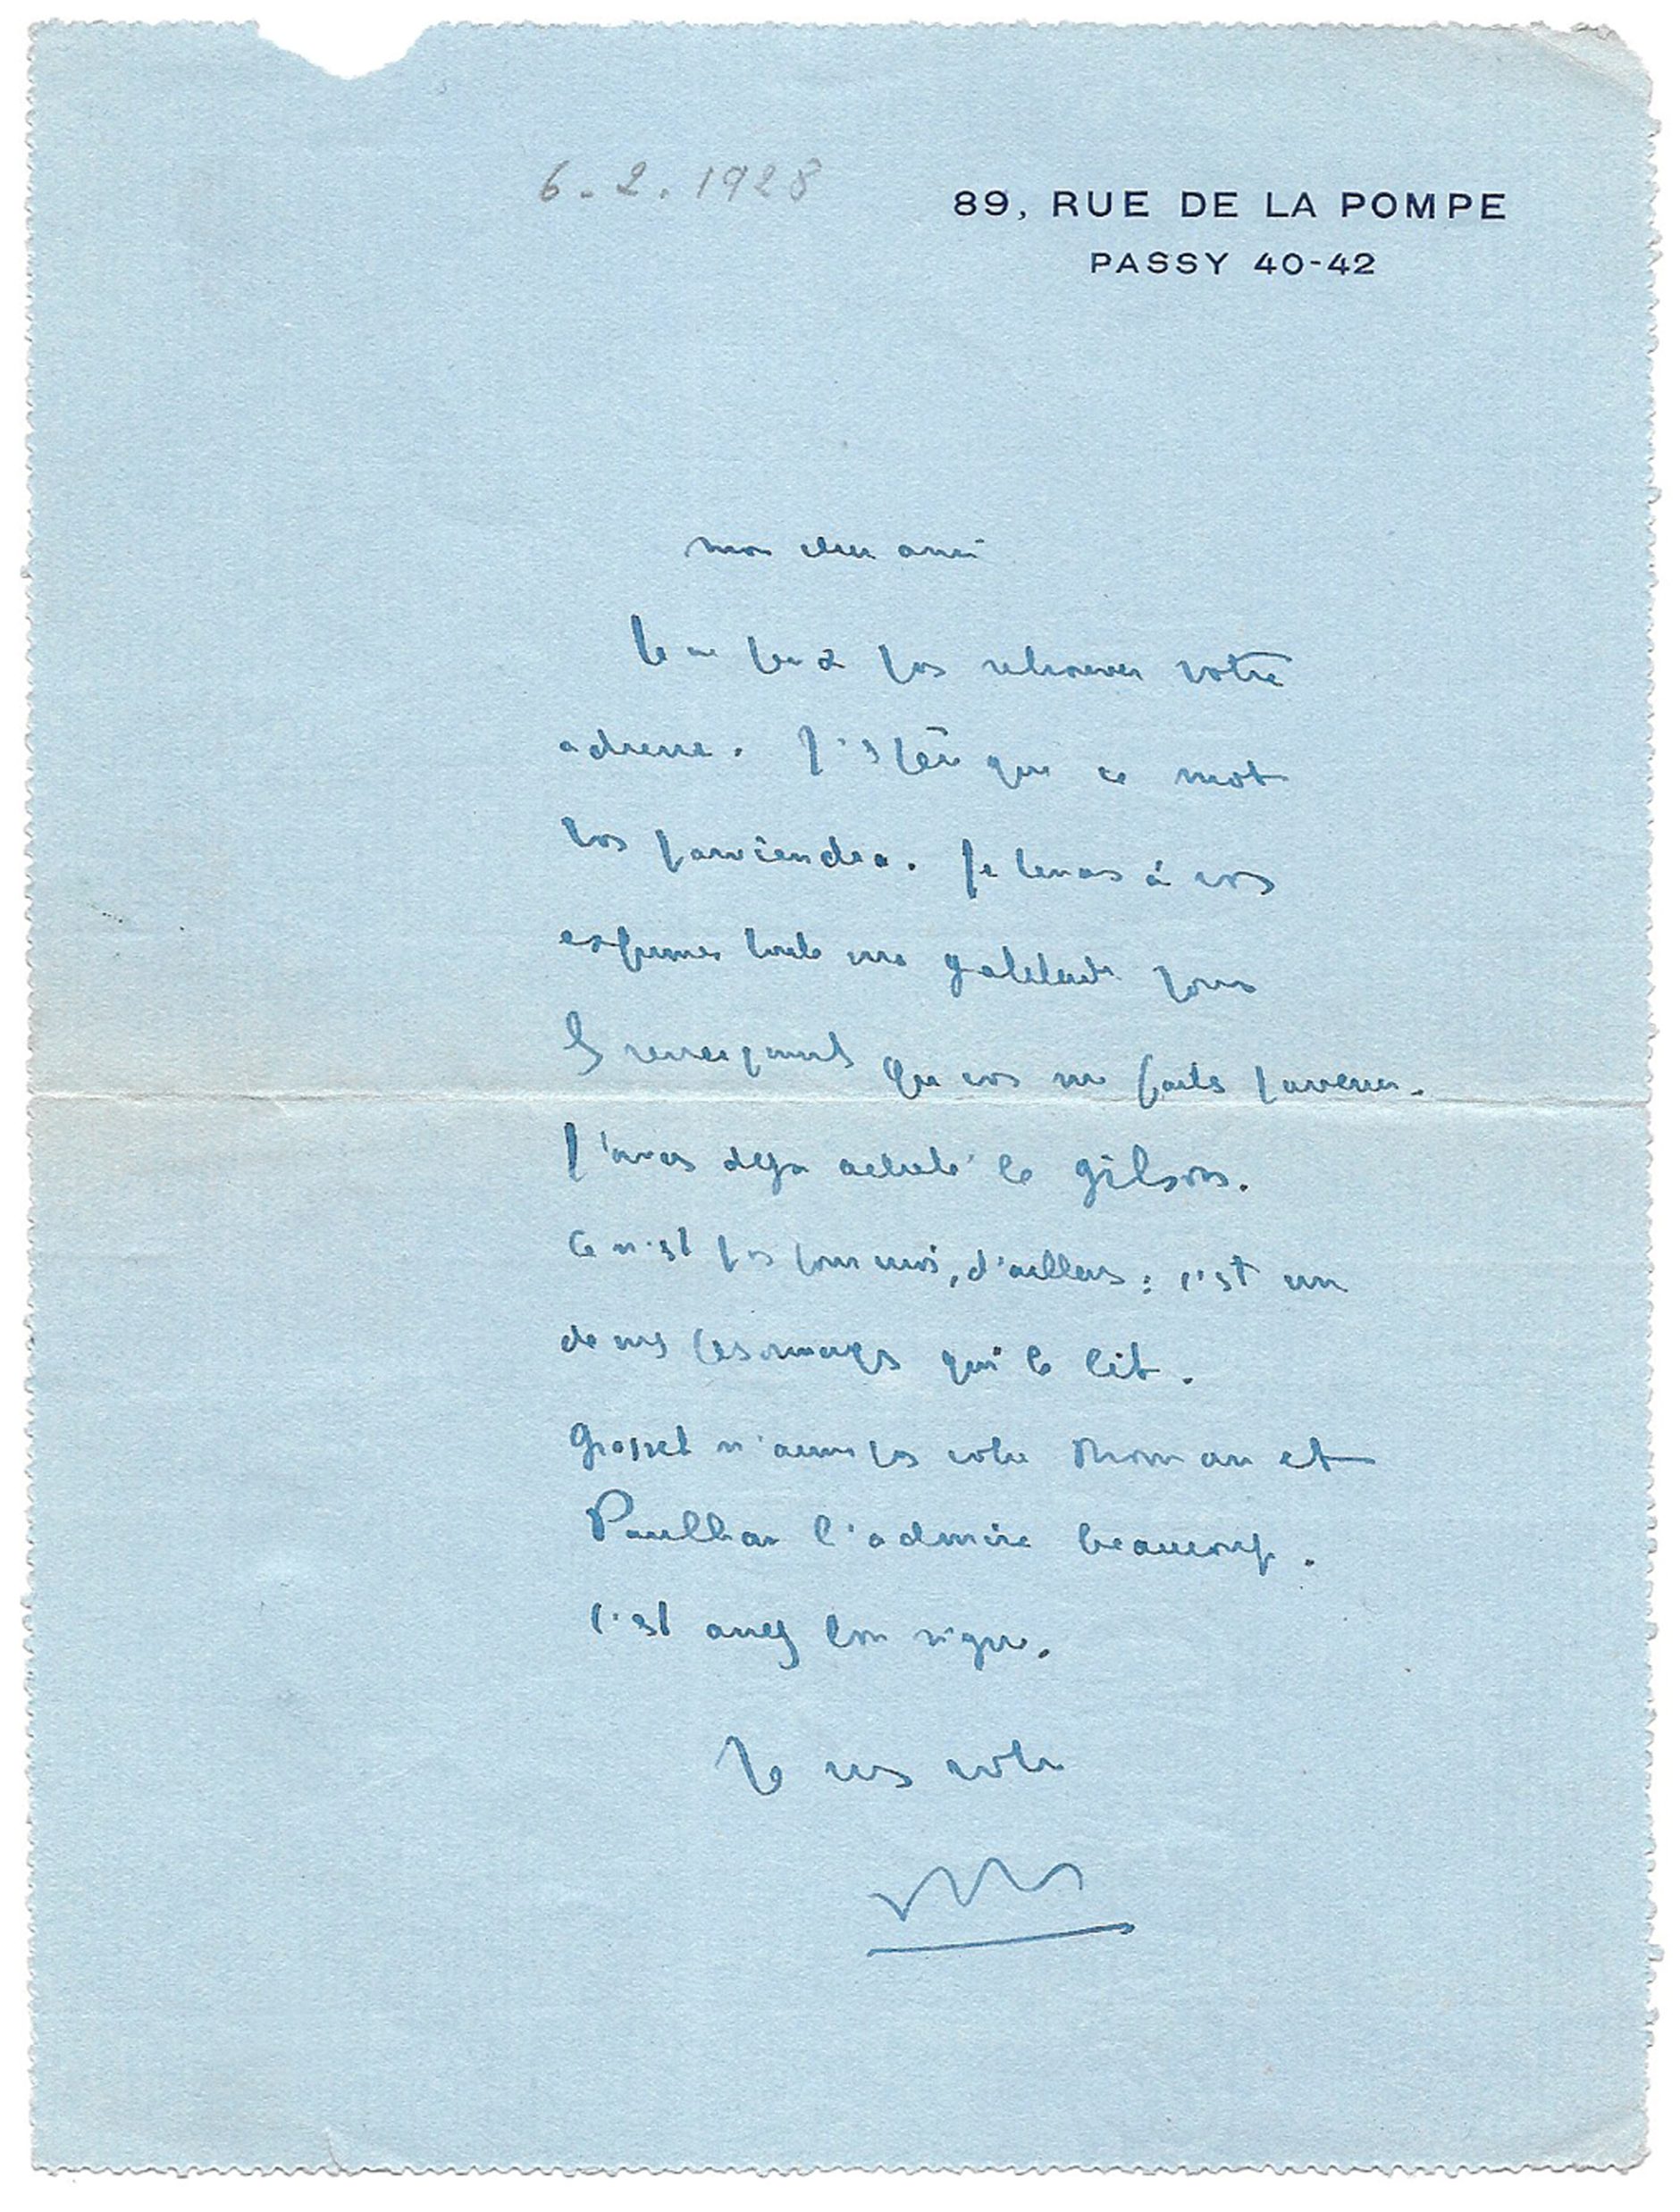 6-2.1928
89, RUE DE LA POMPE
PASSY 40-42
mon cher ami
Je ne peux pas retrouver votre
adresse. J'espère que ce mot
vous parviendra. Je tenais à vous
exprimer toute ma gratitude pour
les renseignements que vous me faites parvenir.
J'avais déjà acheté le Gilson.
Ce n'est pas pour moi, d'ailleurs : c'est un
de mes personnages qui le lit.
Grasset n'aime pas votre Roman et
Paulhan l'admire beaucoup.
C'est assez bon signe.
Je suis votre